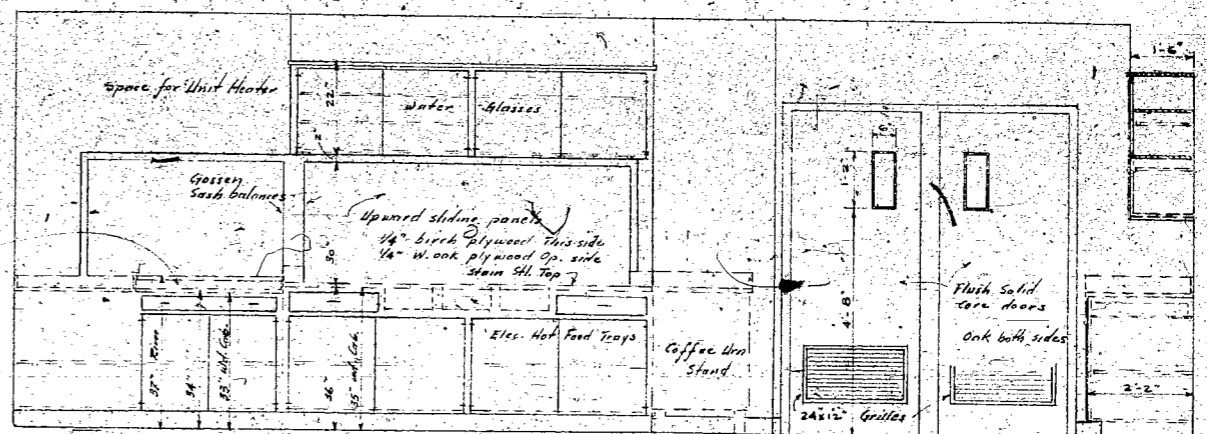 1'-6"
Space for Unit Heater
22"
Water Glasses
2"
10"
1'-2"
Gossen
Sash balances
Upward sliding panels
1/4" birch plywood This side
1/4" W. oak plywood Op. side
Stain Stl. Top
30"
4'-8"
Flush Solid
Core doors
Oak both sides
Elec. Hot Food Trays
Coffee Urn
Stand
37" Rim
34"
33" Wd. Cab.
36"
35" Wd. Cab.
24x12" Grilles
2'-2"